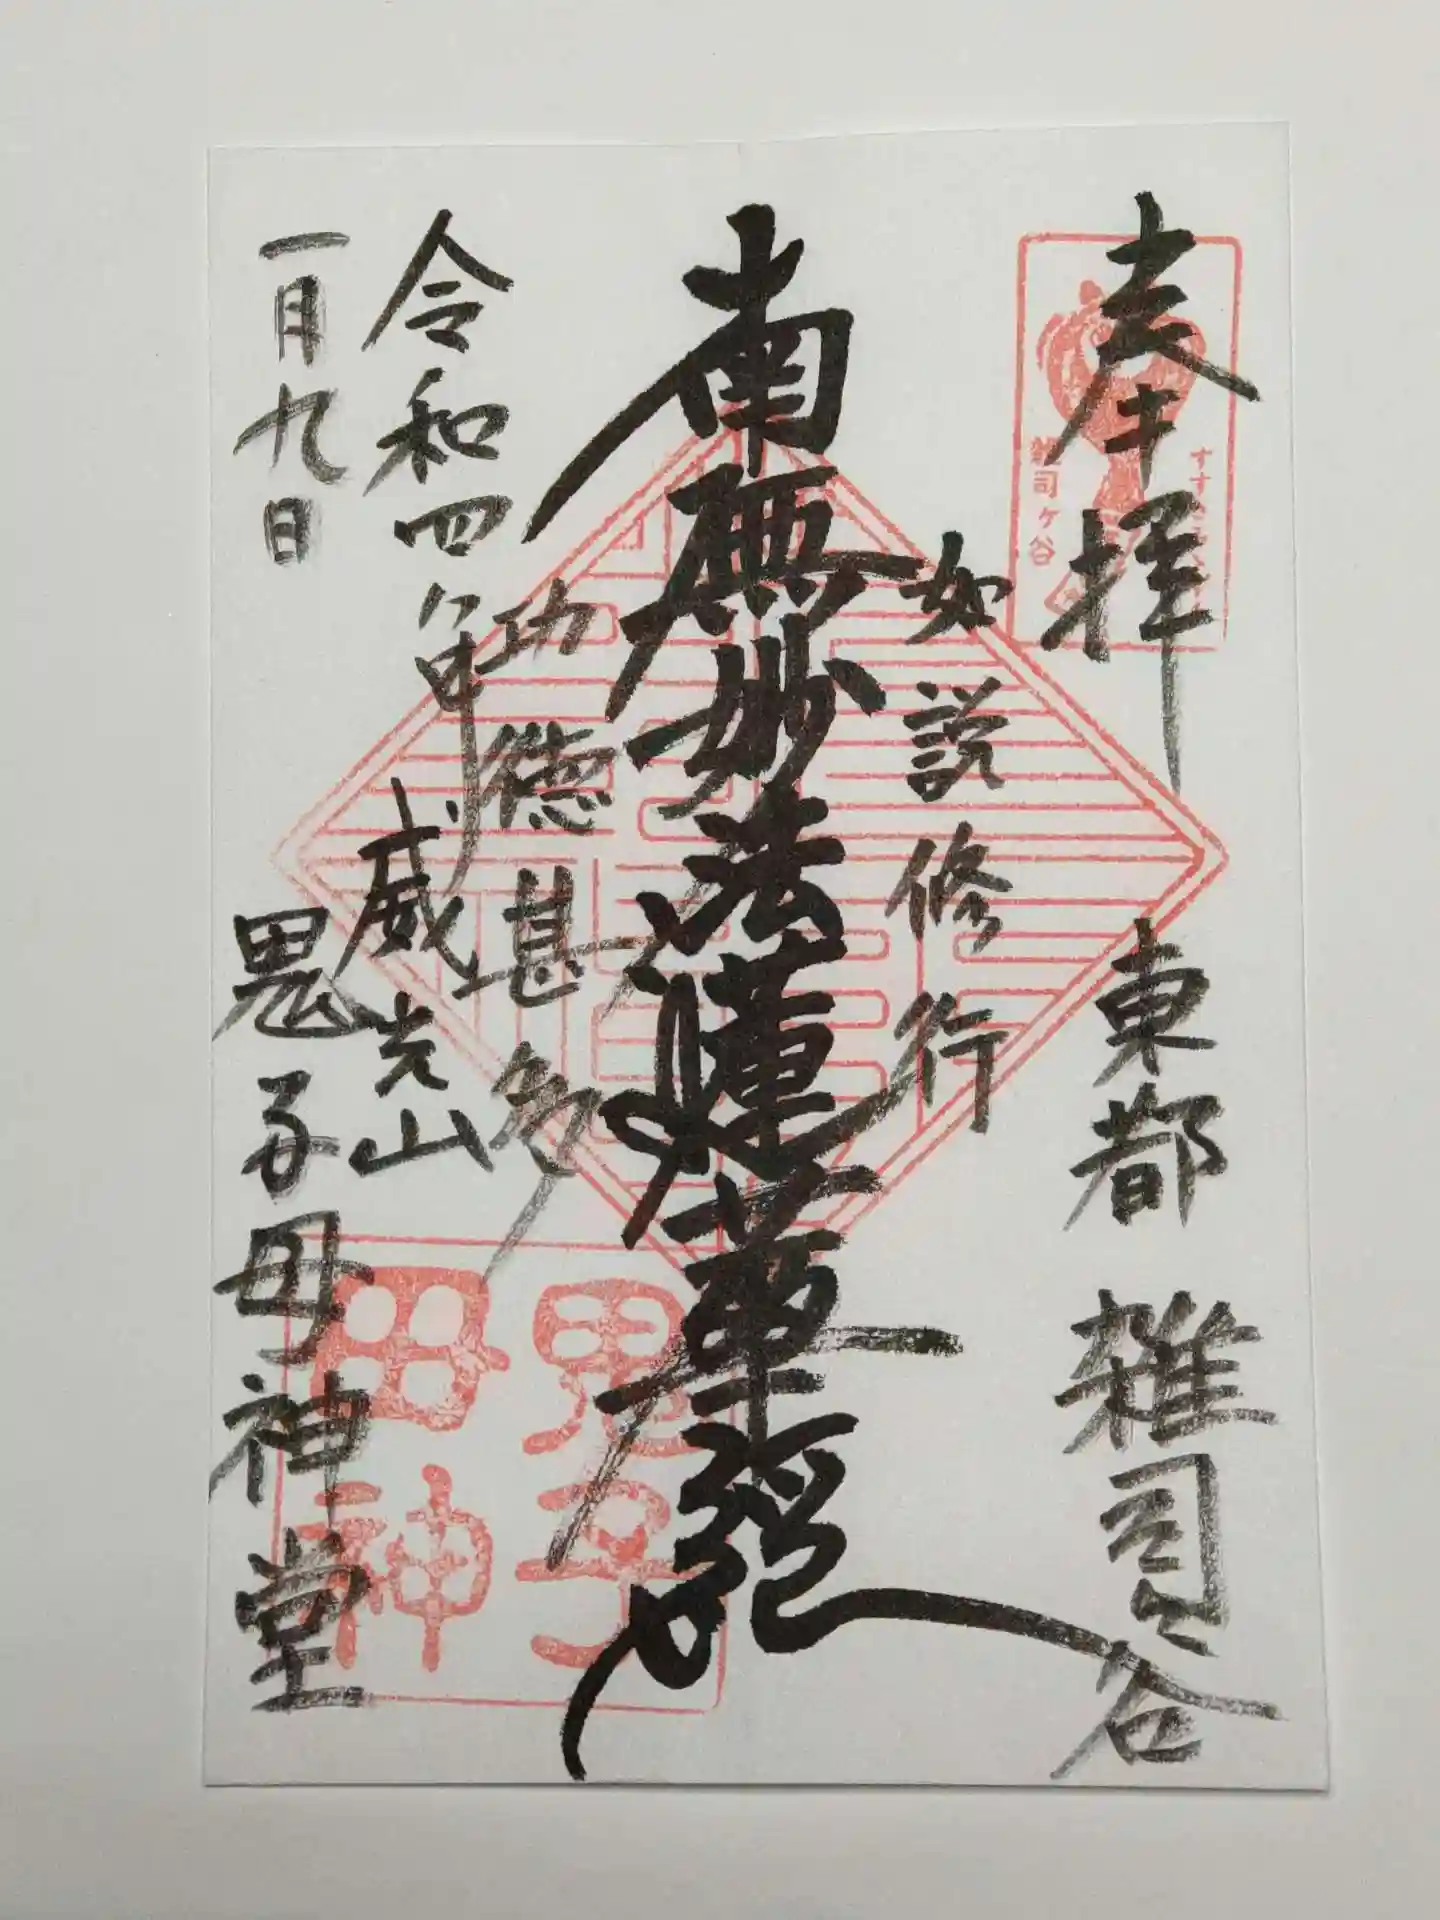 奉拝
東都 雑司谷
すすき
雑司ヶ谷
如説修行
南無妙法蓮華経
功徳甚多
令和四年
威光山
一月九日
鬼子母神堂
鬼子
母神